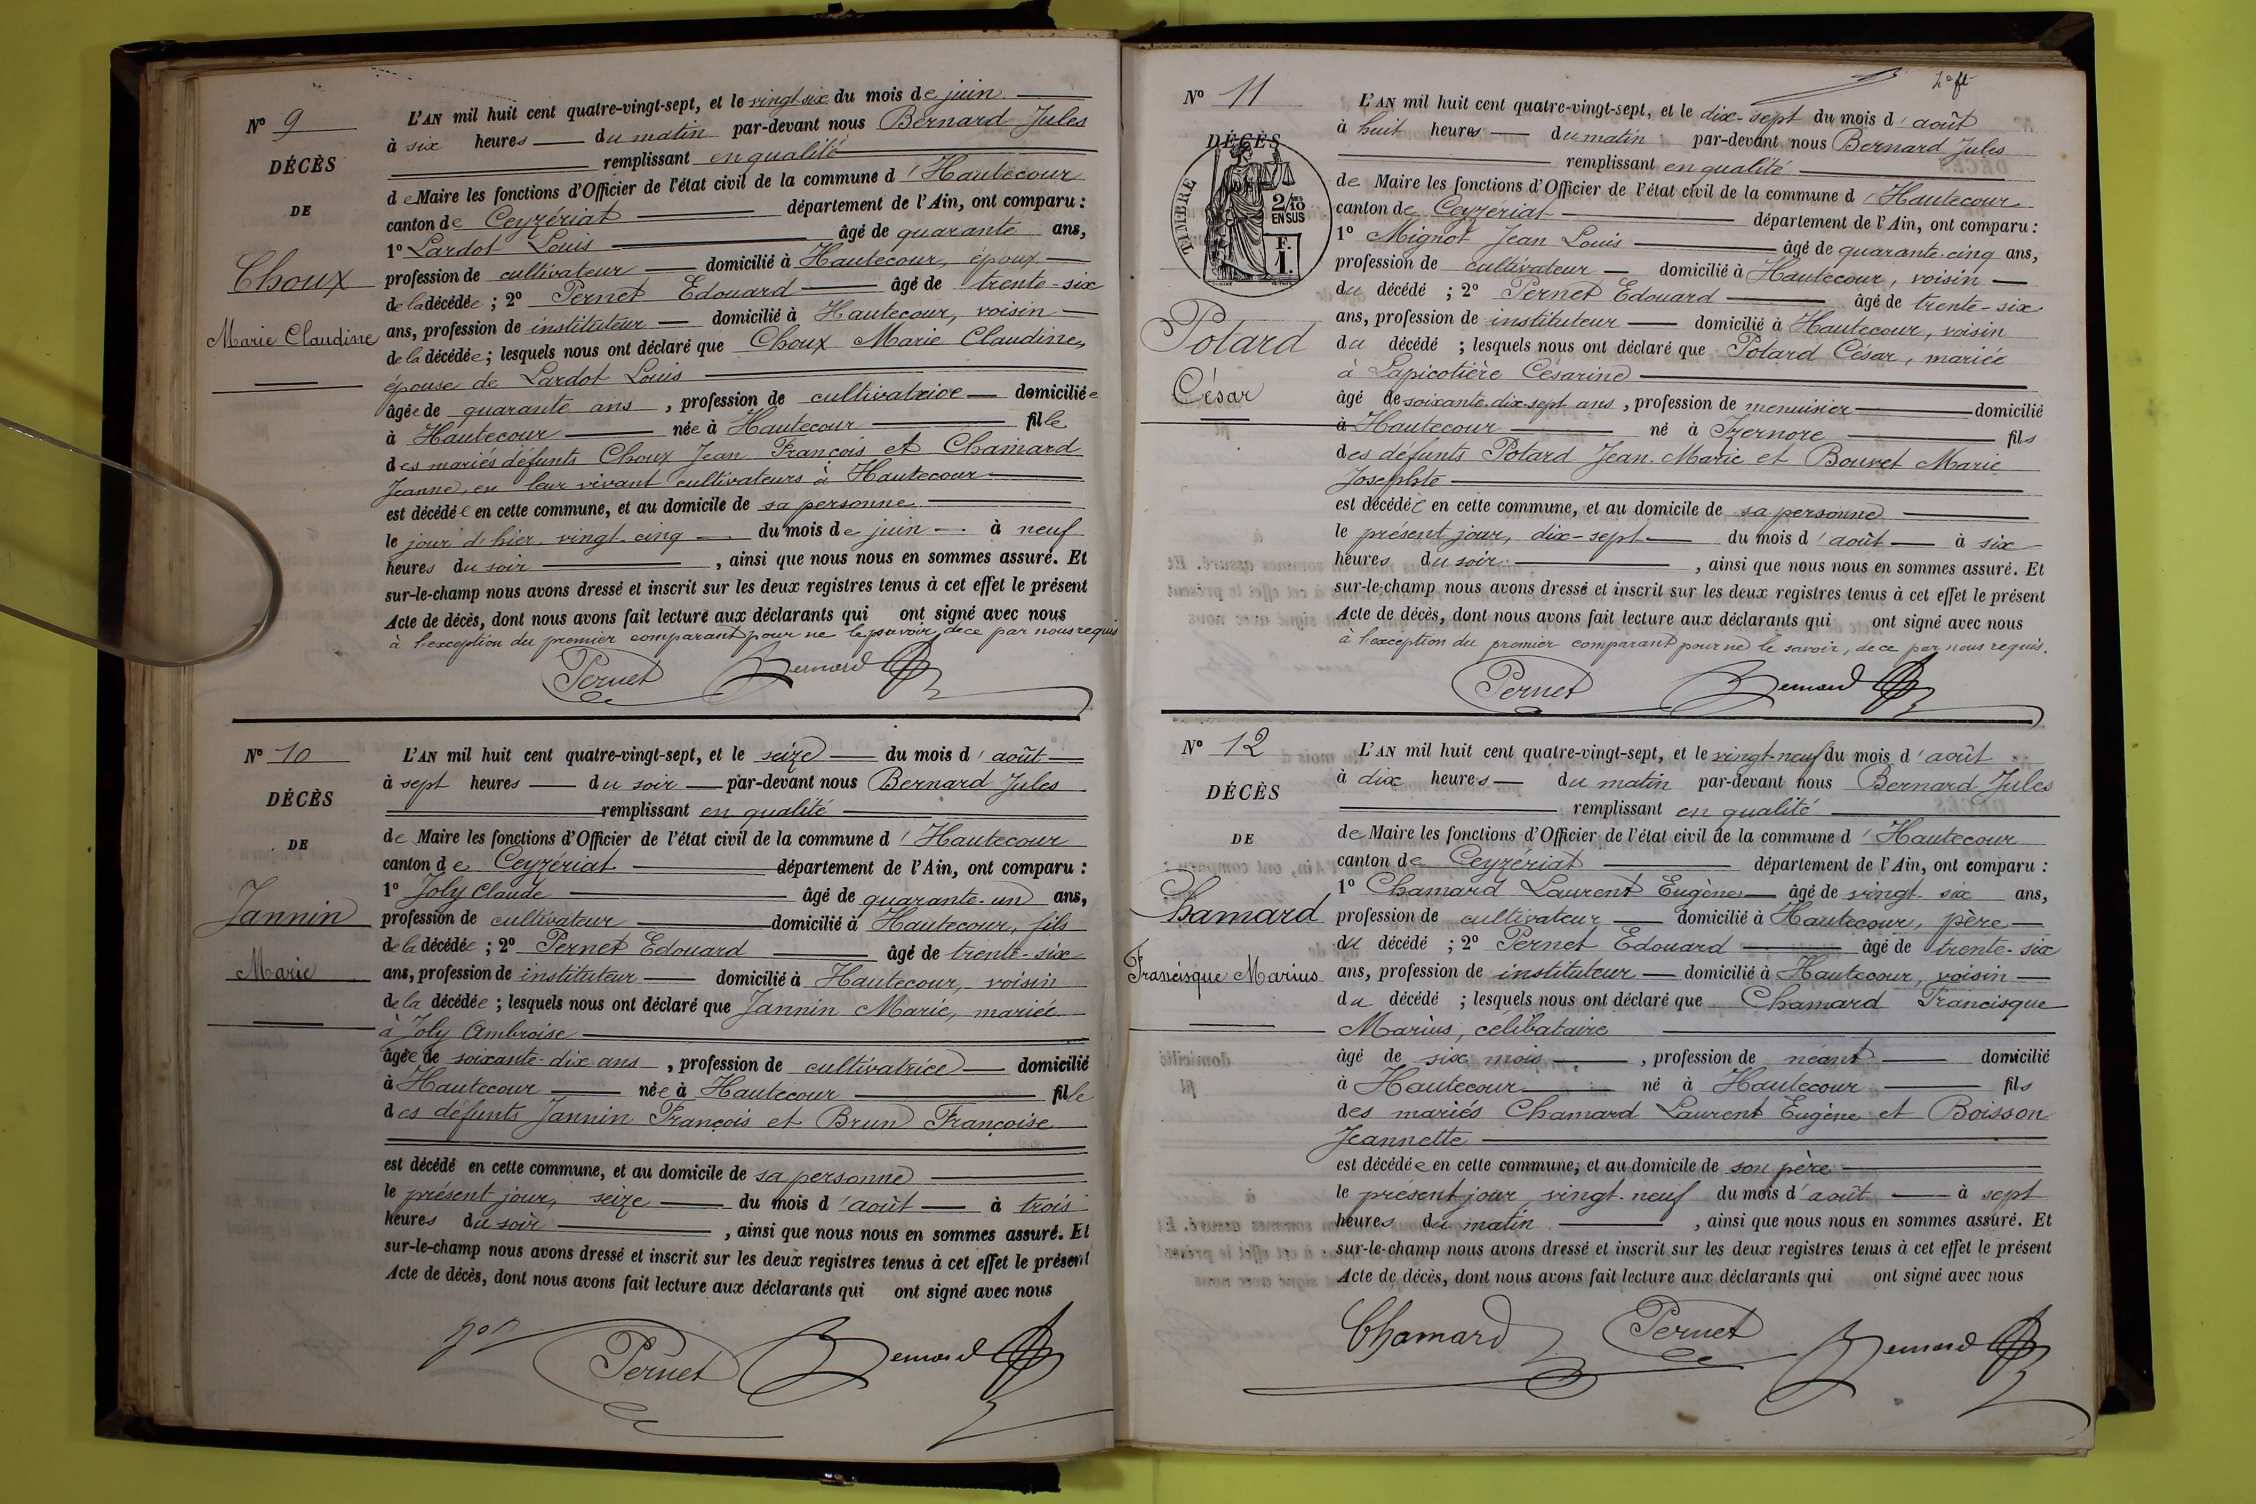 N° 9
DÉCÈS
DE
Choux
Marie Claudine
L'AN mil huit cent quatre-vingt-sept, et le vingt-six du mois de juin
à six heures du matin par-devant nous Bernard Jules
remplissant en qualité
de Maire les fonctions d'Officier de l'état civil de la commune d'Hautecour
canton de Ceyzériat département de l'Ain, ont comparu :
1° Lardot Louis âgé de quarante ans,
profession de cultivateur domicilié à Hautecour, époux
de la décédée ; 2° Pernet Edouard âgé de trente-six
ans, profession de instituteur domicilié à Hautecour, voisin
de la décédée ; lesquels nous ont déclaré que Choux Marie Claudine,
épouse de Lardot Louis
âgée de quarante ans, profession de cultivatrice domiciliée
à Hautecour née à Hautecour fille
des mariés défunts Choux Jean François et Chamard
Jeanne, en leur vivant cultivateurs à Hautecour
est décédée en cette commune, et au domicile de sa personne
le jour d'hier vingt-cinq du mois de juin à neuf
heures du soir, ainsi que nous nous en sommes assuré. Et
sur-le-champ nous avons dressé et inscrit sur les deux registres tenus à cet effet le présent
Acte de décès, dont nous avons fait lecture aux déclarants qui ont signé avec nous
à l'exception du premier comparant pour ne le savoir, de ce par nous requis
Pernet Bernard
N° 10
DÉCÈS
DE
Jannin
Marie
L'AN mil huit cent quatre-vingt-sept, et le seize du mois d'août
à sept heures du soir par-devant nous Bernard Jules
remplissant en qualité
de Maire les fonctions d'Officier de l'état civil de la commune d'Hautecour
canton de Ceyzériat département de l'Ain, ont comparu :
1° Joly Claude âgé de quarante-un ans,
profession de cultivateur domicilié à Hautecour, fils
de la décédée ; 2° Pernet Edouard âgé de trente-six
ans, profession de instituteur domicilié à Hautecour, voisin
de la décédée ; lesquels nous ont déclaré que Jannin Marie, mariée
à Joly Ambroise
âgée de soixante-dix ans, profession de cultivatrice domicilié
à Hautecour née à Hautecour fille
des défunts Jannin François et Brun Françoise
est décédé en cette commune, et au domicile de sa personne
le présent jour, seize du mois d'août à trois
heures du soir, ainsi que nous nous en sommes assuré. Et
sur-le-champ nous avons dressé et inscrit sur les deux registres tenus à cet effet le présent
Acte de décès, dont nous avons fait lecture aux déclarants qui ont signé avec nous
Pernet Bernard
N° 11
DÉCÈS
TIMBRE
2/10 EN SUS
F. 1.
Potard
César
L'AN mil huit cent quatre-vingt-sept, et le dix-sept du mois d'août
à huit heures du matin par-devant nous Bernard Jules
remplissant en qualité
de Maire les fonctions d'Officier de l'état civil de la commune d'Hautecour
canton de Ceyzériat département de l'Ain, ont comparu :
1° Mignot Jean Louis âgé de quarante-cinq ans,
profession de cultivateur domicilié à Hautecour, voisin
du décédé ; 2° Pernet Edouard âgé de trente-six
ans, profession de instituteur domicilié à Hautecour, voisin
du décédé ; lesquels nous ont déclaré que Potard César, mariée
à Lapicotière Césarine
âgé de soixante-dix-sept ans, profession de menuisier domicilié
à Hautecour né à Izernore fils
des défunts Potard Jean-Marie et Bouvet Marie
Josephte
est décédé en cette commune, et au domicile de sa personne
le présent jour, dix-sept du mois d'août à six
heures du soir, ainsi que nous nous en sommes assuré. Et
sur-le-champ nous avons dressé et inscrit sur les deux registres tenus à cet effet le présent
Acte de décès, dont nous avons fait lecture aux déclarants qui ont signé avec nous
à l'exception du premier comparant pour ne le savoir, de ce par nous requis.
Pernet Bernard
N° 12
DÉCÈS
DE
Chamard
Francisque Marius
L'AN mil huit cent quatre-vingt-sept, et le vingt-neuf du mois d'août
à dix heures du matin par-devant nous Bernard Jules
remplissant en qualité
de Maire les fonctions d'Officier de l'état civil de la commune d'Hautecour
canton de Ceyzériat département de l'Ain, ont comparu :
1° Chamard Laurent Eugène âgé de vingt-six ans,
profession de cultivateur domicilié à Hautecour, père
du décédé ; 2° Pernet Edouard âgé de trente-six
ans, profession de instituteur domicilié à Hautecour, voisin
du décédé ; lesquels nous ont déclaré que Chamard Francisque
Marius, célibataire
âgé de six mois, profession de néant domicilié
à Hautecour né à Hautecour fils
des mariés Chamard Laurent Eugène et Boisson
Jeannette
est décédée en cette commune, et au domicile de son père
le présent jour vingt-neuf du mois d'août à sept
heures du matin, ainsi que nous nous en sommes assuré. Et
sur-le-champ nous avons dressé et inscrit sur les deux registres tenus à cet effet le présent
Acte de décès, dont nous avons fait lecture aux déclarants qui ont signé avec nous
Chamard Pernet Bernard